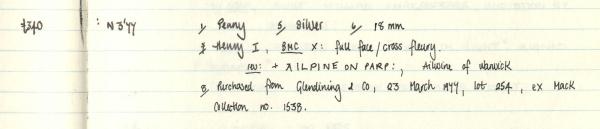 £340 : N3'77 1, Penny 5, Silver 6, 18mm
2, Henry I, BMC X: full face/cross fleury.
rev: + AILPINE ON PARP:, Ailwine of Warwick
8, Purchased from Glendining & Co, 23 March 1977, lot 254, ex Mack
Collection no. 1538.